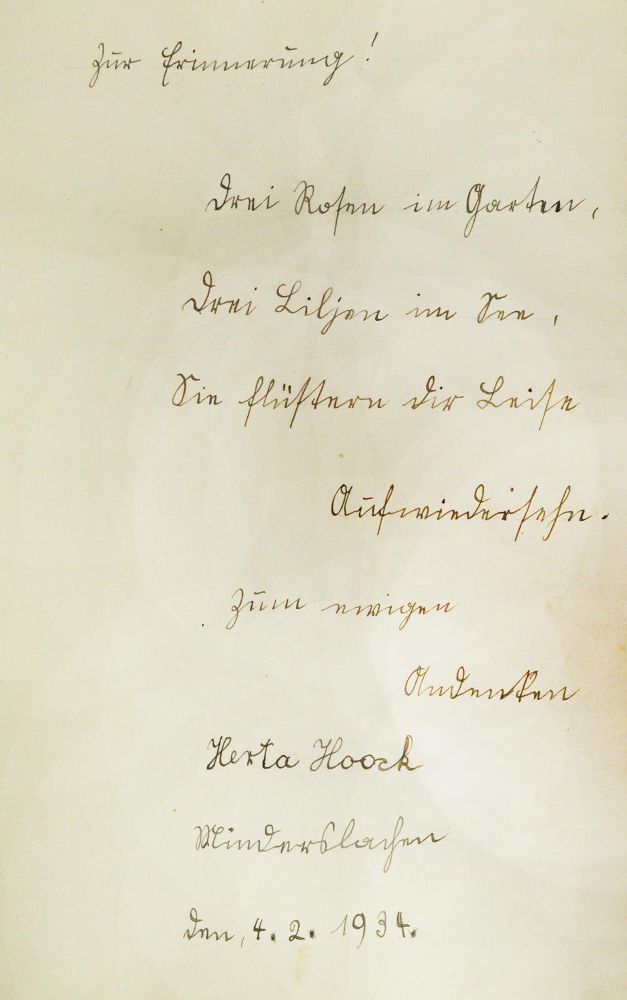 Zur Erinnerung!
Drei Rosen im Garten,
Drei Liljen im See,
Sie flüstern dir Leise
Aufwiedersehn.
Zum ewigen
Andenken
Herta Hoock
Minderslachen
den, 4. 2. 1934.